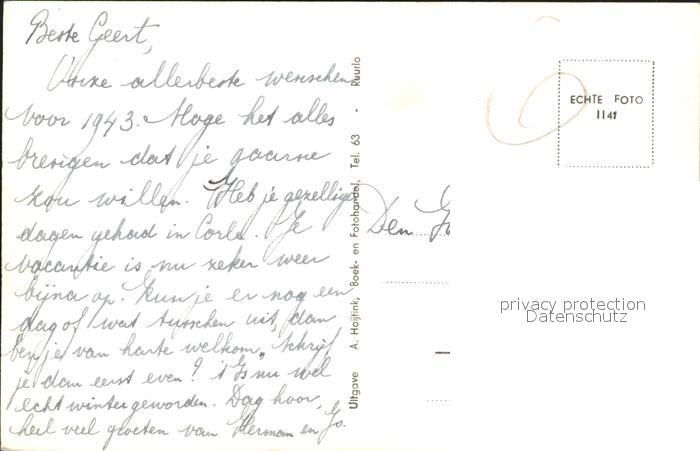 Beste Geert,
Onze allerbeste wenschen
voor 1943. Moge het alles
brengen dat je gaarne
zou willen. Heb je gezellige
dagen gehad in Corle. Je
vacantie is nu zeker weer
bijna op. Kun je er nog een
dag of wat tusschen uit, dan
ben je van harte welkom, schrijf
je dan eerst even? 't Is nu wel
echt winter geworden. Dag hoor,
heel veel groeten van Herman en Jo.
Uitgave A. Haijtink, Boek- en Fotohandel, Tel. 63 - Ruurlo
ECHTE FOTO
1141
Den
privacy protection
Datenschutz